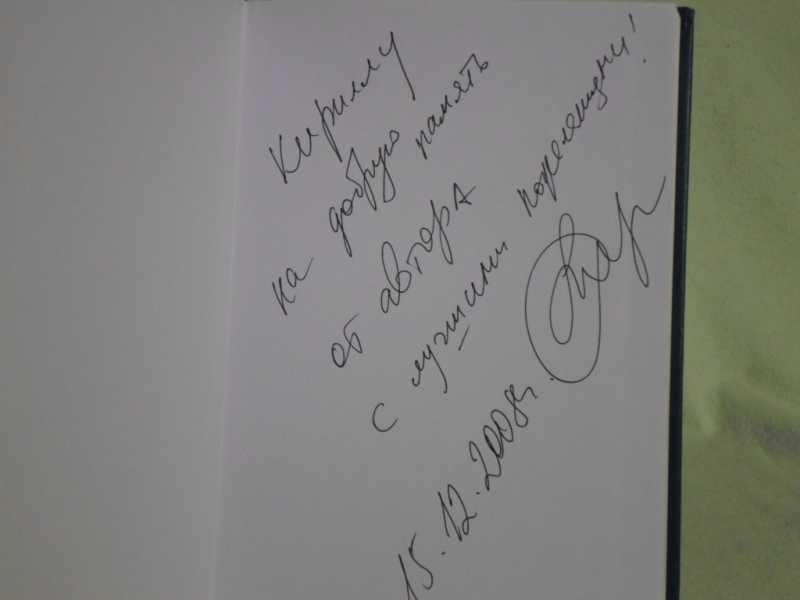 Кириллу
на добрую память
от автора
с лучшими пожеланиями!
15.12.2008г.